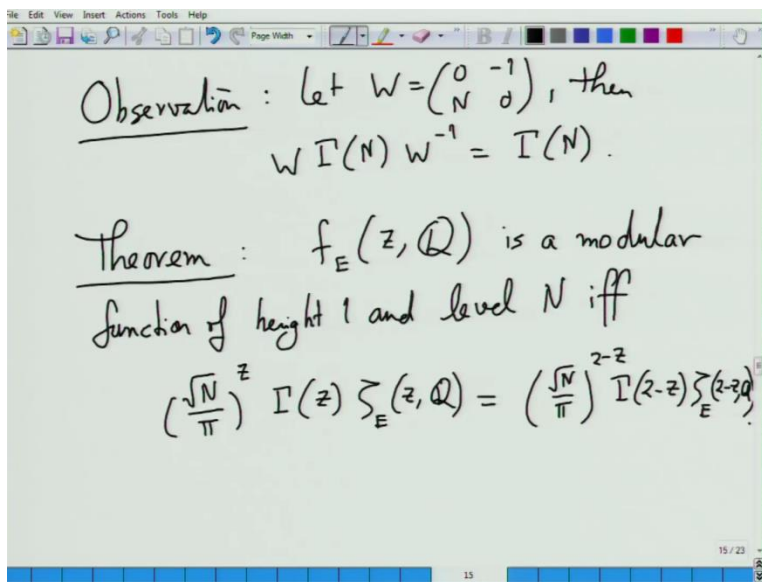 File Edit View Insert Actions Tools Help
Page Width
Observation : Let W = (0 -1 N 0), then
W Γ(N) W⁻¹ = Γ(N).
Theorem : f_E(z, Q) is a modular
function of height 1 and level N iff
(√N/π)^z Γ(z) ζ_E(z, Q) = (√N/π)^{2-z} Γ(2-z) ζ_E(2-z, Q).
15 / 23
15